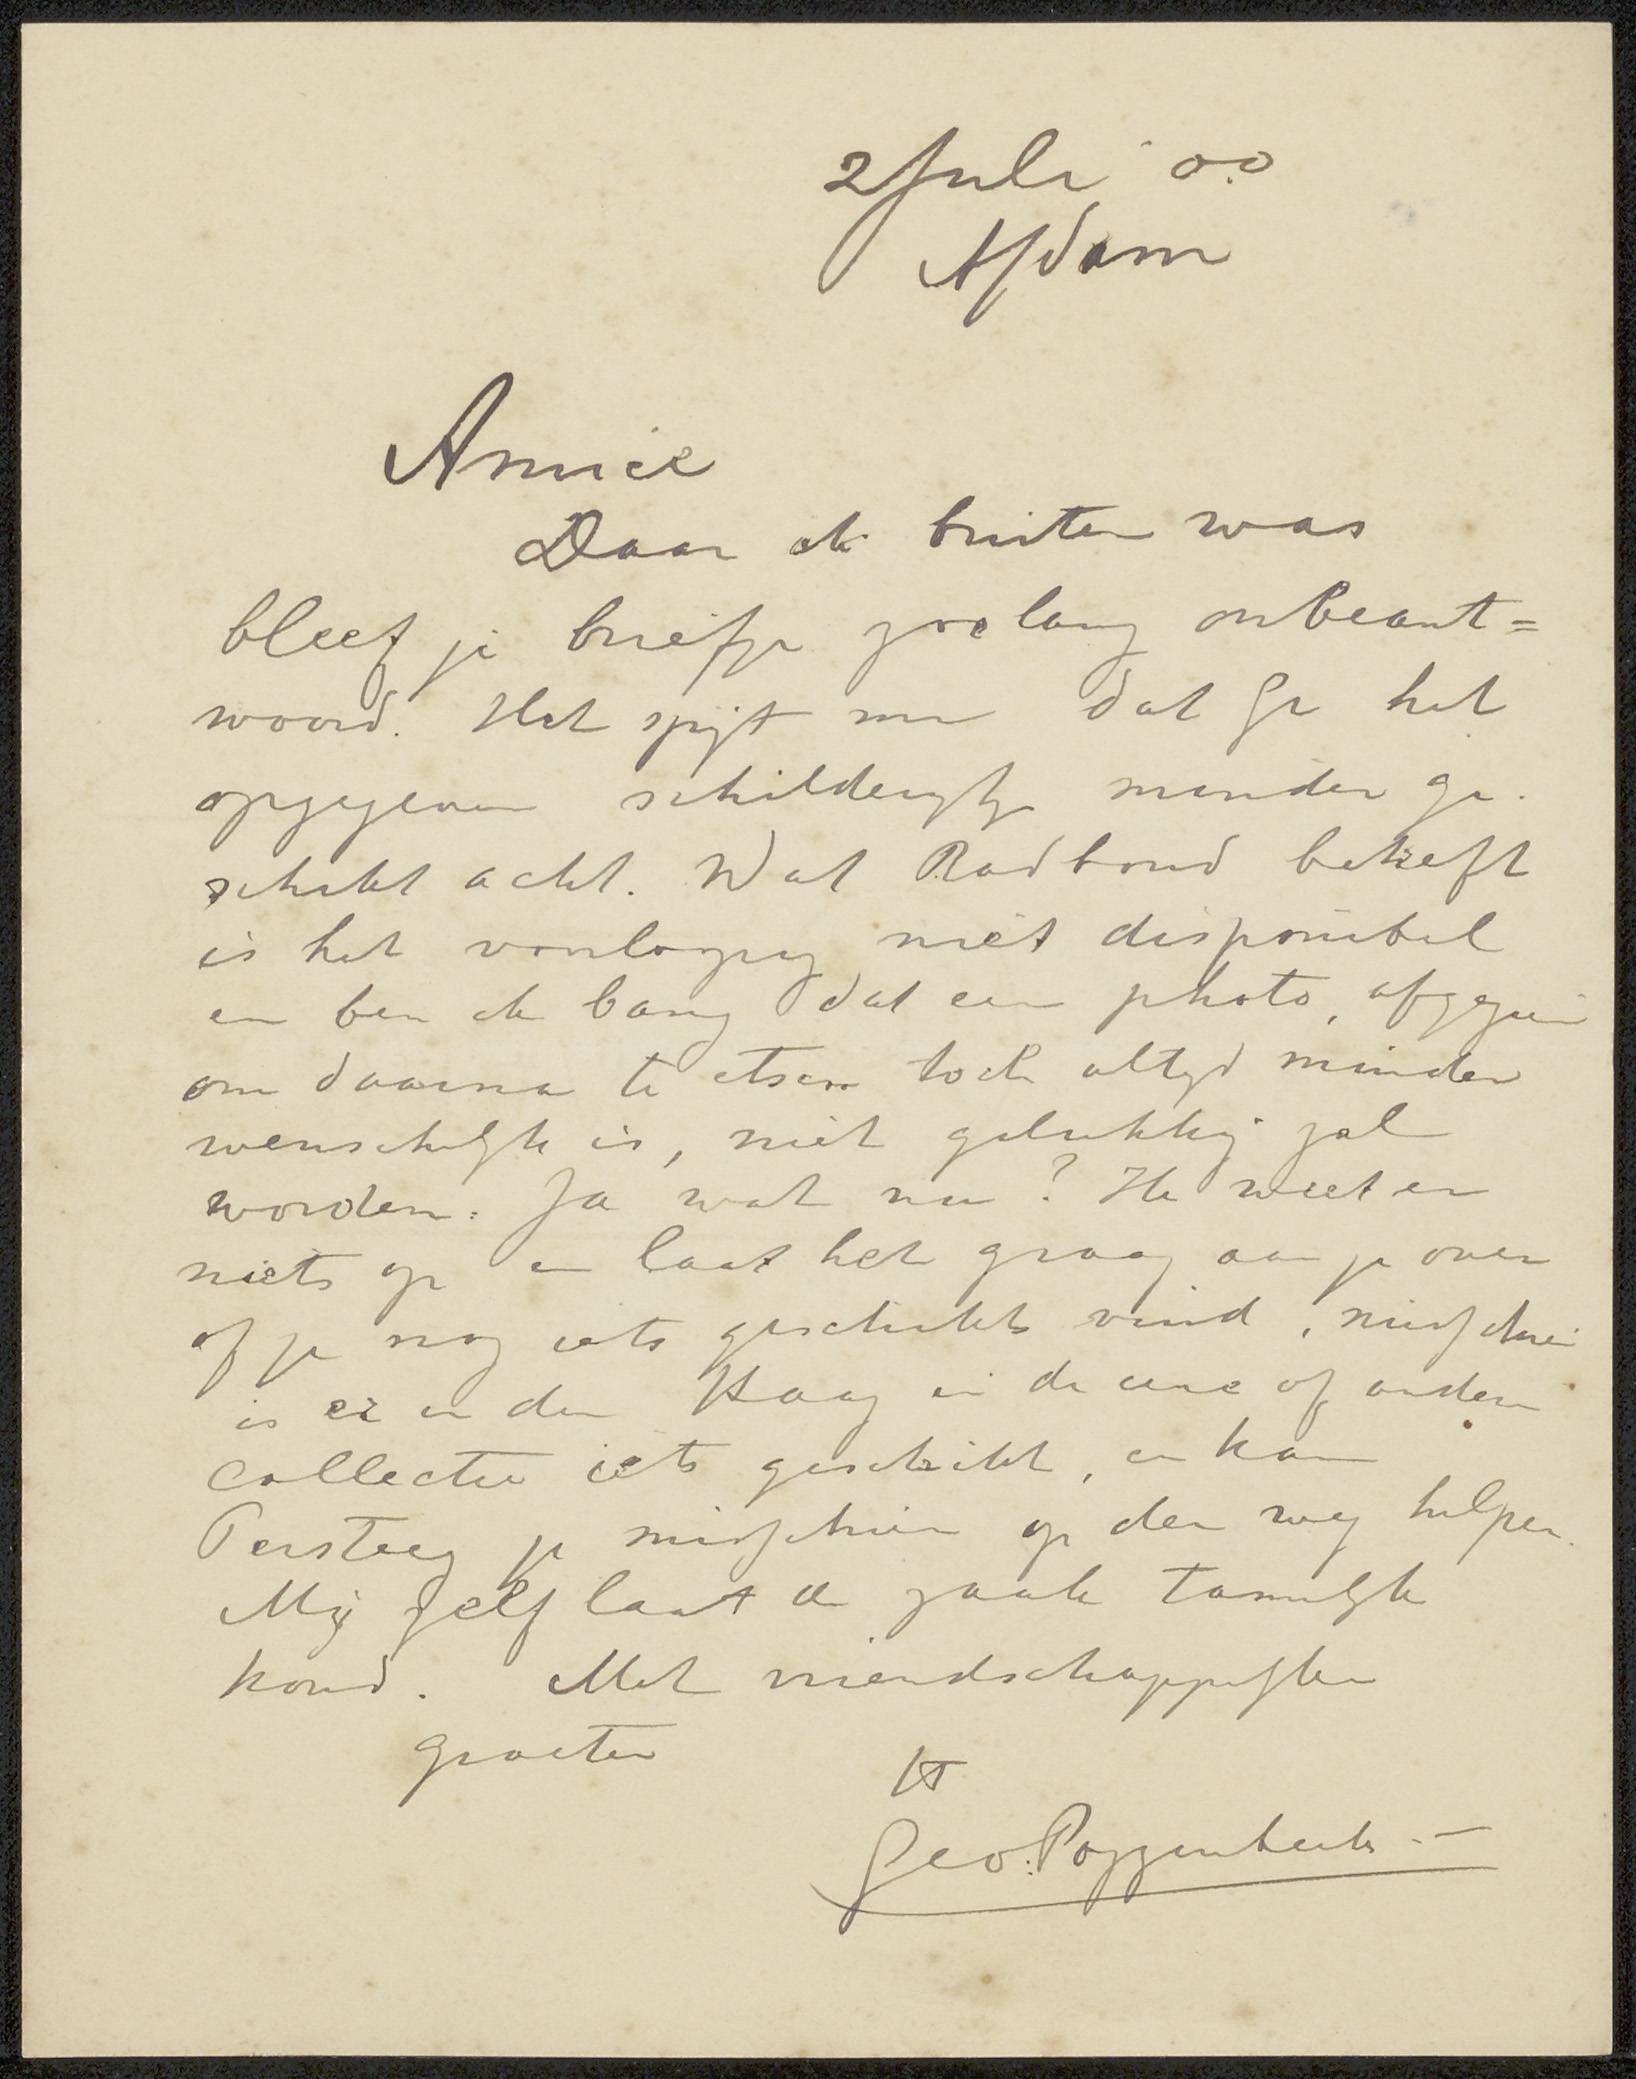 2 Juli '00
A/dam
Amice
Daar ik buiten was
bleef je briefje zoolang onbeant=
woord. Het spijt me dat Ge het
opgegeven schilderijtje minder ge-
schikt acht. Wat Radboud betreft
is het voorloopig niet disponibel
en ben ik bang dat een photo, afgezien
om daarna te etsen toch altijd minder
wenschelijk is, niet gelukkig zal
worden. Ja wat nu? Ik weet er
niets op en laat het graag aan je over
of je nog iets geschikts vind, misschien
is er in den Haag in de eene of andere
collectie iets geschikt, en kan
Tersteeg je misschien op den weg helpen.
Mij zelf laat de zaak tamelijk
koud. Met vriendschappelijke
groeten
tt
Geo. Poggenbeek.-